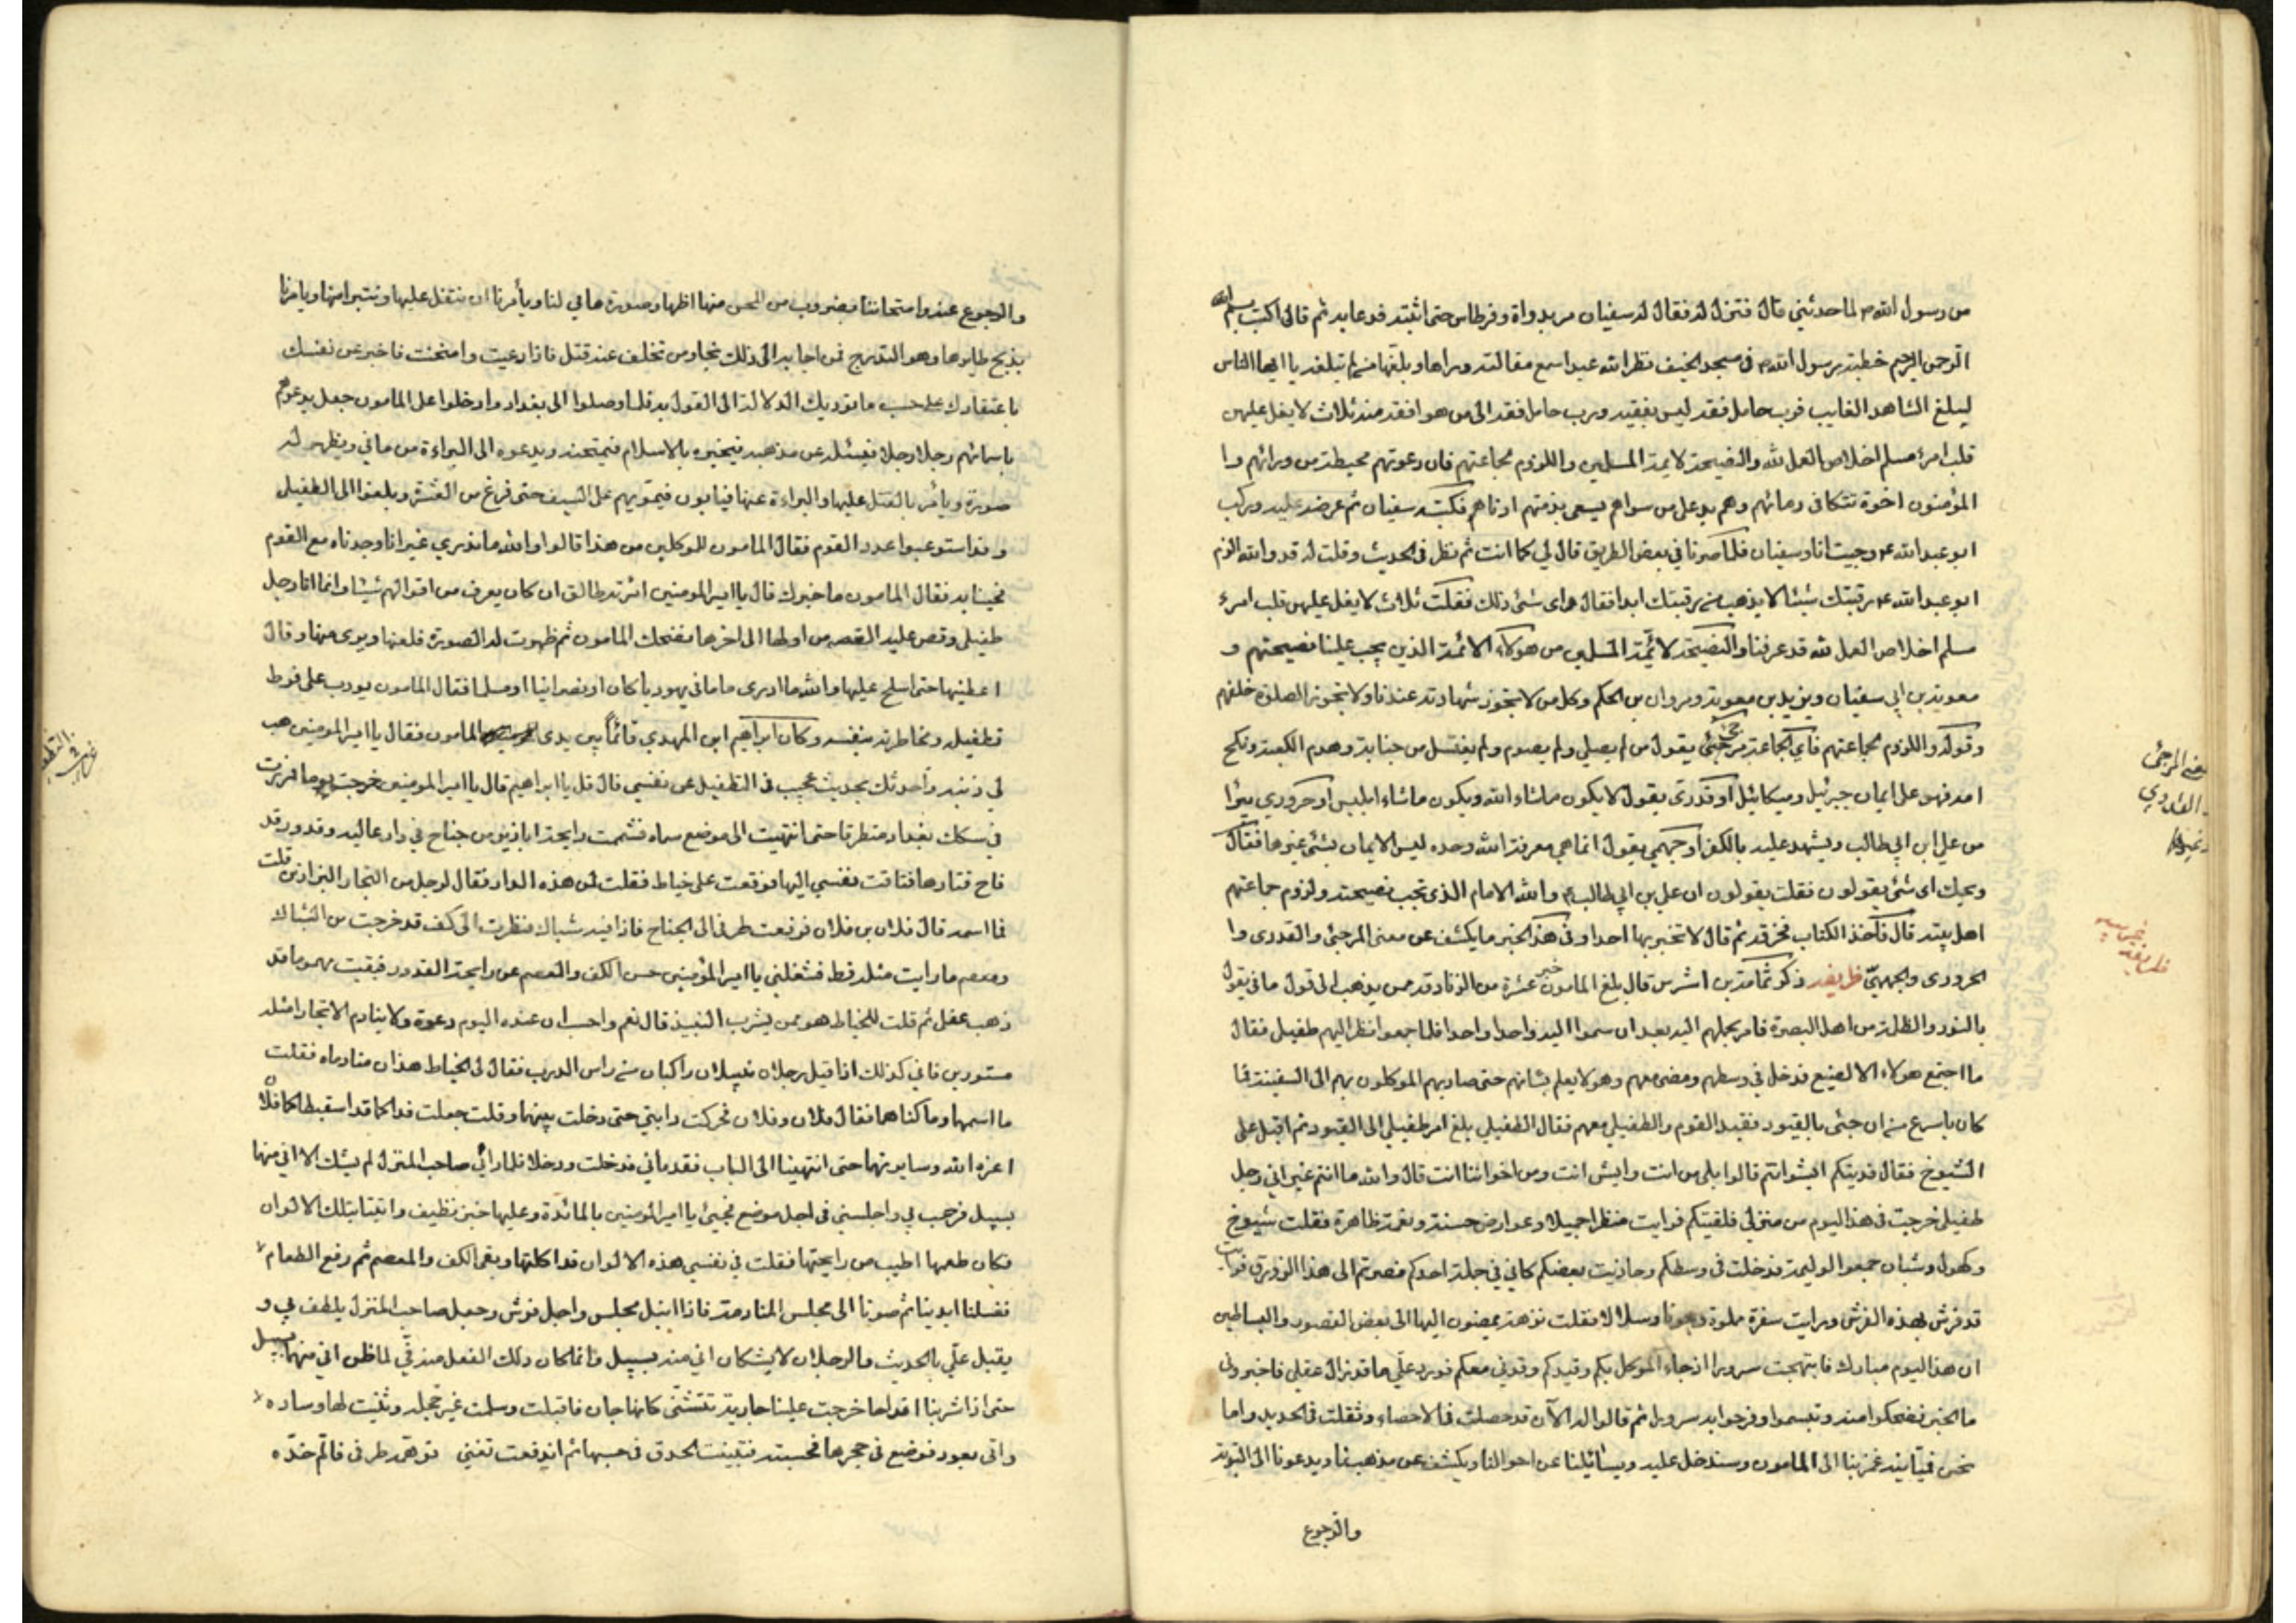 من رسول الله ص لما حدثتني قال فنزل له فقال له سفيان مر بدواة وقرطاس حتى اثبته فدعا به ثم قال اكتب بسم الله
الرحمن الرحيم خطبة رسول الله ص في مسجد الخيف نظر الله عبدا سمع مقالتي وراها وبلغها من لم تبلغه يا ايها الناس
ليبلغ الشاهد الغايب فرب حامل فقه ليس بفقيه ورب حامل فقه الى من هو افقه منه ثلاث لا يغل عليهن
قلب امرء مسلم اخلاص العمل لله والنصيحة لايمة المسلمين واللزوم لجماعتهم فان دعوتهم محيطة من ورائهم وا
المؤمنون اخوة تتكافى دمائهم وهم يد على من سواهم يسعى بذمتهم ادناهم فكتبه سفيان ثم عرضه عليه وركب
ابو عبد الله ع وجيت انا وسفيان فلما صرنا في بعض الطريق قال لي كما انت ثم نظر في الحديث وقلت له قد والله الزم
ابو عبد الله ع رقبتك شيئا لا يذهب من رقبتك ابدا فقال واى شئ ذلك فقلت ثلاث لا يغل عليهن قلب امرء
مسلم اخلاص العمل لله قد عرفناه والنصيحة لائمة المسلمين من هولاء الائمة الذين يجب علينا نصيحتهم و
معوية بن ابي سفيان ويزيد بن معوية ومروان بن الحكم وكل من لا تجوز شهادته عندنا ولا تجوز الصلوة خلفهم
وقوله واللزوم لجماعتهم فاي الجماعة مرجئ يقول من لم يصلي ولم يصوم ولم يغتسل من جنابة وهدم الكعبة ونكح
امه فهو على ايمان جبرئيل وميكائيل او قدرى يقول لا يكون ما شاء الله ويكون ما شاء ابليس او حرورى يبرأ
من علي ابن ابي طالب ويشهد عليه بالكفر او جهمي يقول انما هي معرفة الله وحده ليس الايمان بشئ غيرها فقال
ويحك اى شئ يقولون فقلت يقولون ان علي بن ابي طالب ع والله الامام الذى تجب نصيحته ولزوم جماعتهم
اهل بيته قال فاخذ الكتاب فخرقه ثم قال لا تخبر بها احدا وفي هذا الخبر ما يكشف عن معنى المرجئ والقدرى وا
الحرورى والجهمي ظريفه ذكر ثمامة بن اشرس قال بلغ المامون خبر عشرة من الزنادقة ممن يذهب الى قول ماني يقول
بالنور والظلمة من اهل البصرة فامر بحملهم اليه بعد ان سموا اليه واحدا واحدا فلما جمعوا نظر اليهم طفيلي فقال
ما اجتمع هولاء الا لصنيع فدخل في وسطهم ومضى معهم وهو لا يعلم بشانهم حتى صار بهم الموكلون بهم الى السفينة فما
كان باسرع من ان جئى بالقيود فقيد القوم والطفيلي معهم فقال الطفيلي بلغ امر طفيلي الى القيود ثم اقبل على
الشيوخ فقال فديتكم ايش انتم قالوا بلى من انت وايش انت ومن اخواننا انت قال والله ما انتم غير اني رجل
طفيلي خرجت في هذا اليوم من منزلي فلقيتكم فرايت منظرا جميلا وعوارض حسنة ونعمة ظاهرة فقلت شيوخ
وكهول وشبان جمعوا لوليمة فدخلت في وسطكم وحاذيت بعضكم كاني في جملة احدكم فصرتم الى هذا الزورق فرايت
قد فرش بهذه الفرش ورايت سفرة مملوة وجربا وسلالا فقلت نزهة يمضون اليها الى بعض القصور والبساطين
ان هذا اليوم مبارك فابتهجت سرورا اذ جاء الموكل بكم وقيدكم وقيدني معكم فورد علي ما قد زال عقلي فاخبروني
ما الخبر فضحكوا منه وتبسموا وفرحوا به سرورا ثم قالوا له الآن قد حصلت في الاحصاء وثقلت في الحديد واما
نحن فمانية غمز بنا الى المامون وسندخل عليه ويسائلنا عن احوالنا ويكشف عن مذهبنا ويدعونا الى التوبة
والرجوع
يعني المرجئ
والقدري
وغيرها
والرجوع عنه وامتحاننا بضروب من المحن منها اظهار صورة ماني لنا ويأمرنا ان نتفل عليها ونتبرا منها ويامرنا
بذبح طاير ماء وهو التدرج فمن اجابه الى ذلك نجا ومن تخلف عنه قتل فاذا دعيت وامتحنت فاخبر عن نفسك
باعتقادك على حسب ما توديك الدلالة الى القول به فلما وصلوا الى بغداد وادخلوا على المامون جعل يدعوهم
باسمائهم رجلا رجلا فيسئله عن مذهبه فيخبره بالاسلام فيمتحنه ويدعوه الى البراءة من ماني ويظهر له
صورته ويأمر بالتفل عليها والبراءة عنها فيابون فيمر بهم على السيف حتى فرغ من العشرة وبلغوا الى الطفيلي
وقد استوعبوا عدد القوم فقال المامون للموكلين من هذا قالوا والله ما ندري غير انا وجدناه مع القوم
فجينا به فقال المامون ما خبرك قال يا امير المومنين امرته طالق ان كان يعرف من اقوالهم شيئا وانما انا رجل
طفيلي وقص عليه القصه من اولها الى اخرها فضحك المامون ثم ظهرت له الصورة فلعنها وبرى منها وقال
اعطينيها حتى اسلح عليها والله ما ادرى ما ماني يهوديا كان او نصرانيا او مسلما فقال المامون يودب على فرط
تطفيله ومخاطرته بنفسه وكان ابراهيم ابن المهدي قائماً بين يدى المامون فقال يا امير المومنين هب
لي ذنبه واحدثك بحديث عجيب في التطفيل عن نفسي قال قل يا ابراهيم قال يا امير المومنين خرجت يوما فمررت
في سكك بغداد متطرقا حتى انتهيت الى موضع سماه فشممت رايحة ابازير من جناح في دار عاليه وقدور قد
فاح قتارها فتاقت نفسي اليها فوقعت على خياط فقلت لمن هذه الدار فقال لرجل من التجار البزازين قلت
فما اسمه قال فلان بن فلان فرفعت طرفي الى الجناح فاذا فيه شباك فنظرت الى كف قد خرجت من الشباك
ومعصم ما رايت مثله قط فشغلني يا امير المؤمنين حسن الكف والمعصم عن رايحة القدور فبقيت بهوما قد
ذهب عقلي ثم قلت للخياط هو ممن يشرب النبيذ قال نعم واحسب ان عنده اليوم دعوة ولا ينادم الا تجارا مثله
مستورين فاني كذلك اذ اقبل رجلان نبيلان راكبان من راس الدرب فقال لى الخياط هذان منادماه فقلت
ما اسمهما وما كناهما فقال فلان وفلان فحركت دابتي حتى دخلت بينهما وقلت جعلت فداكما قد استبطاكما فلان
اعزه الله وسايرتهما حتى انتهينا الى الباب فقدماني فدخلت ودخلا فلما رآني صاحب المنزل لم يشك الا اني منهما
بسبيل فرحب بي واجلسني في اجل موضع فجئى يا امير المؤمنين بالمائدة وعليها خبز نظيف واتينا بتلك الالوان
فكان طعمها اطيب من رايحتها فقلت في نفسي هذه الالوان قد اكلتها وبقى الكف والمعصم ثم رفع الطعام
فغسلنا ايدينا ثم صرنا الى مجلس المنادمة فاذا انبل مجلس واجل فرش وجعل صاحب المنزل يلطف بي و
يقبل علّي بالحديث والرجلان لا يشكان اني منه بسبيل وانما كان ذلك الفعل منه في لما ظن اني منهما بسبيل
حتى اذا شربنا اقداحا خرجت علينا جارية تتثنّى كانها جان فاقبلت وسلمت غير خجله وثنيت لها وساده
واتى بعود فوضع في حجرها فجسته فتبينت الحذق في جسها ثم اندفعت تغني توهمه طرفي فالّم خدّه